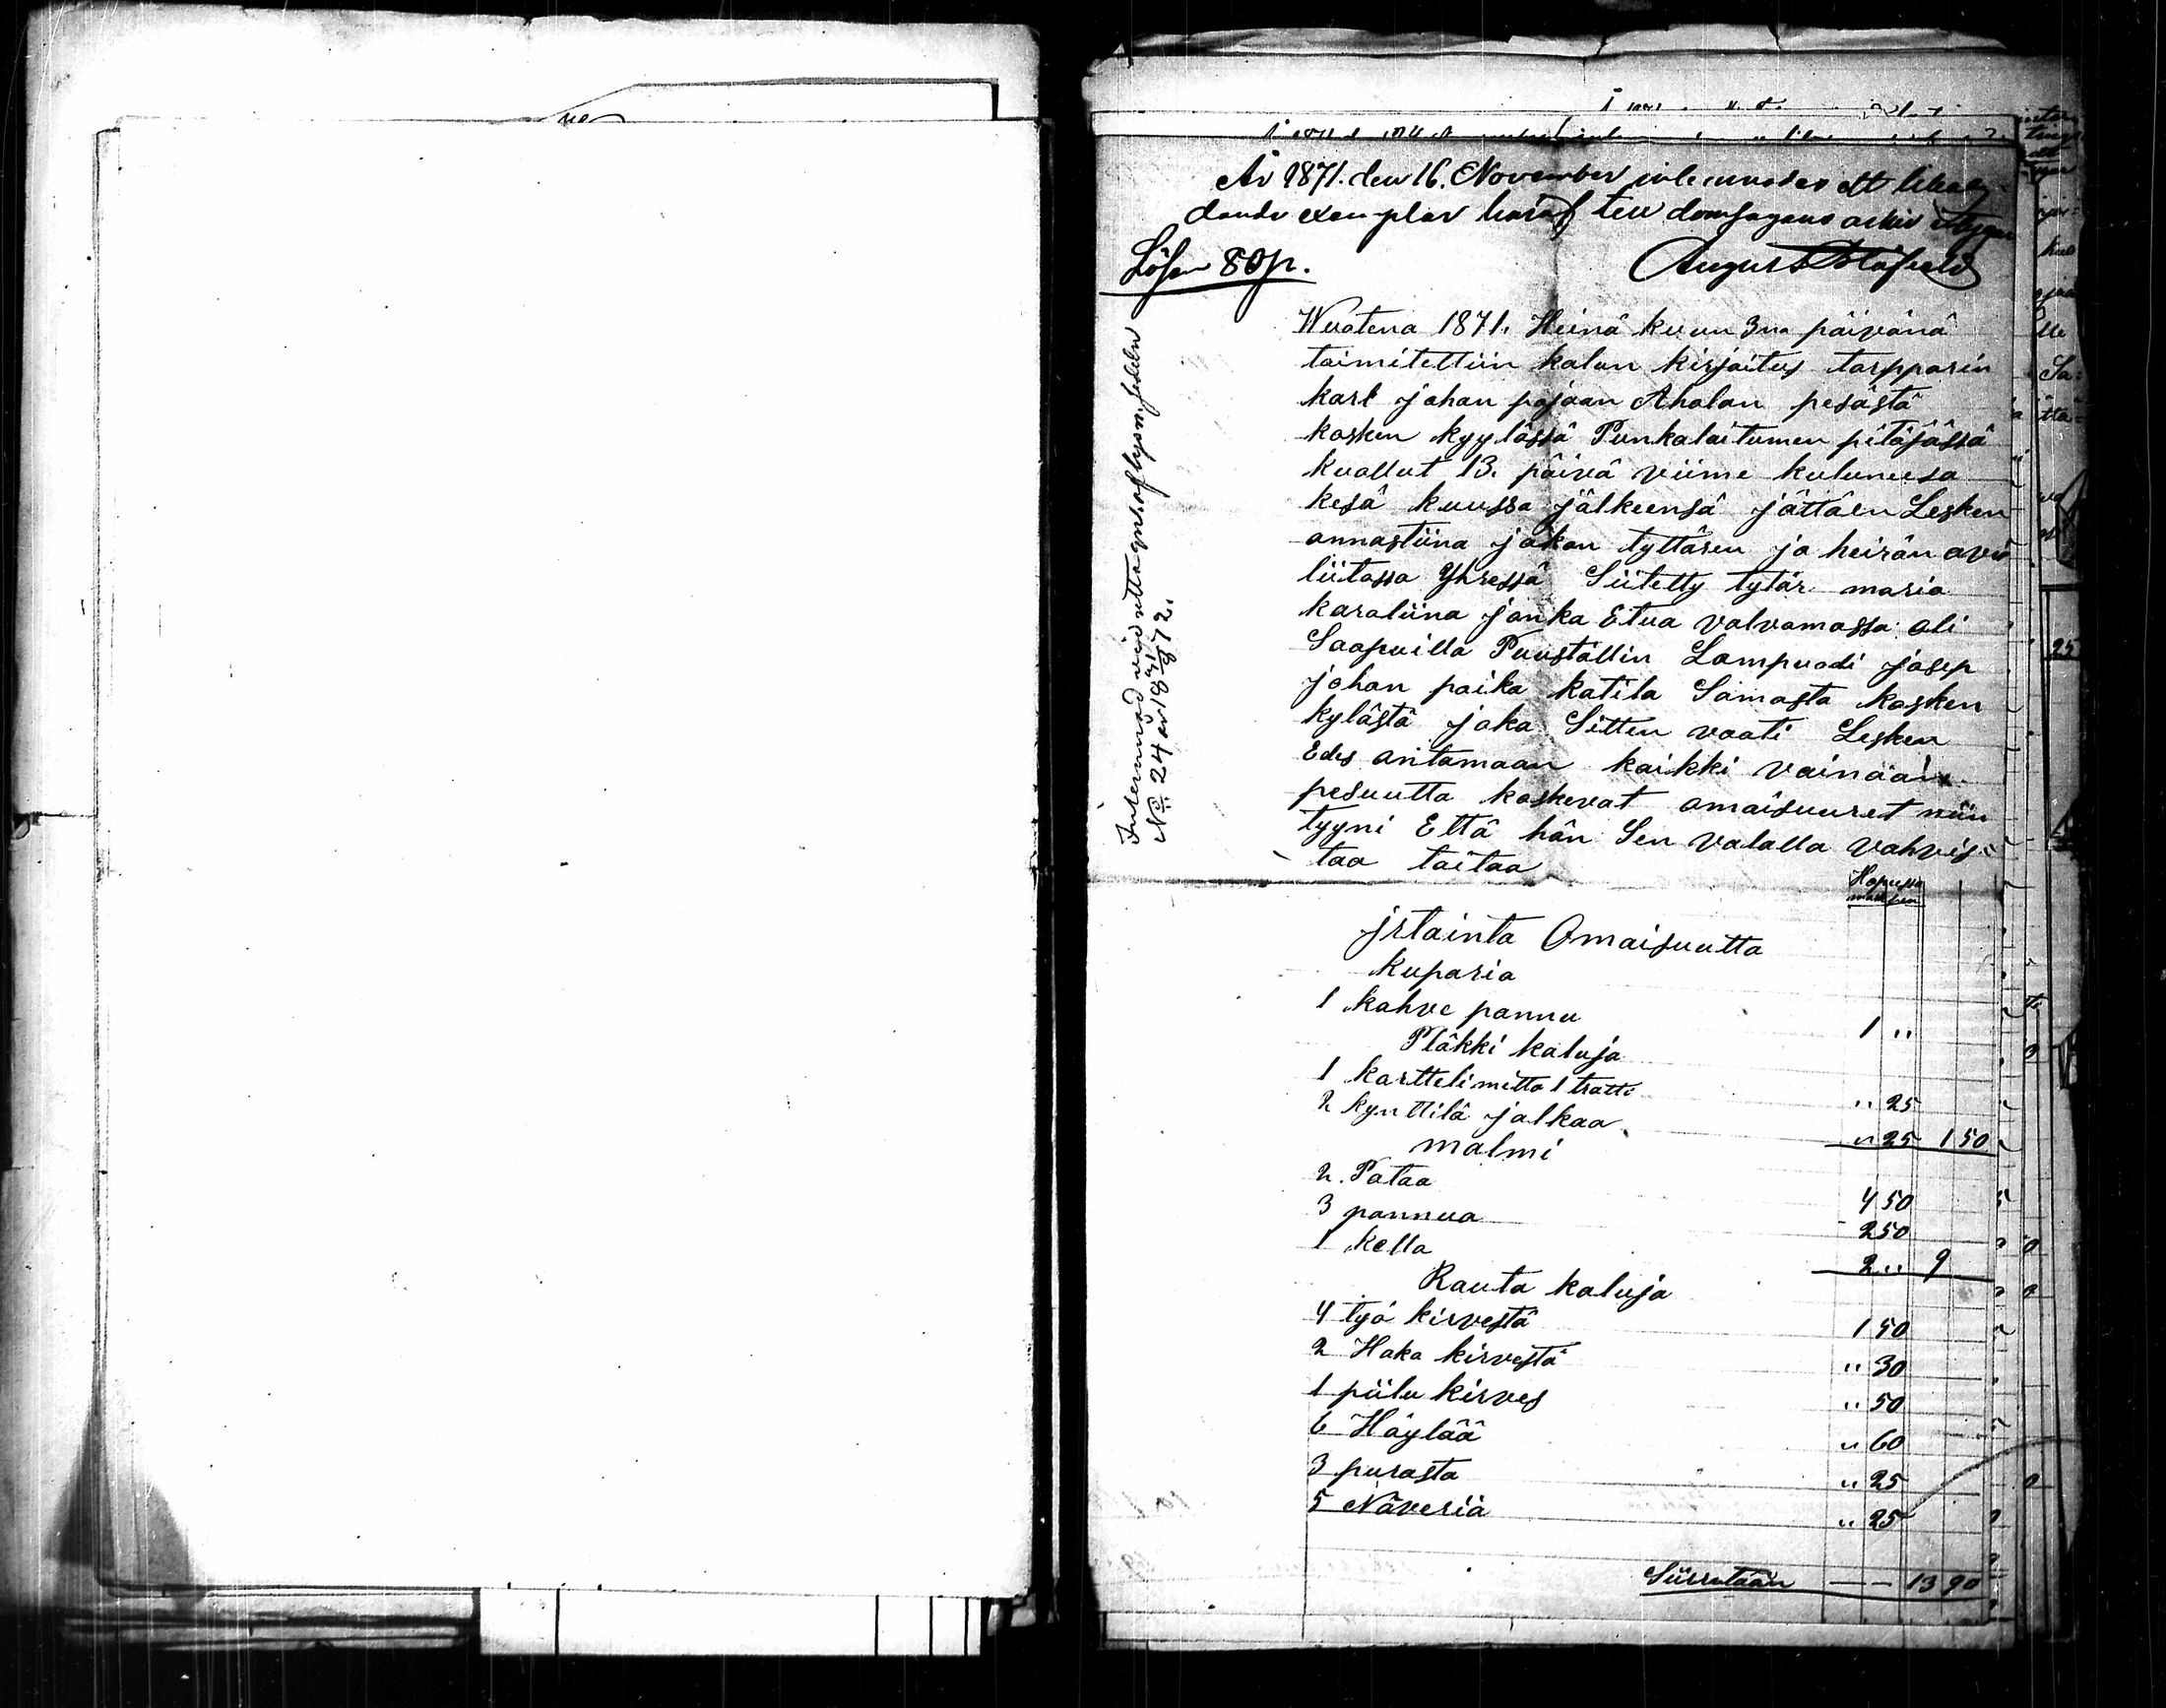 År 1871. den 16. November inlemnades ett likaly-
dande exemplar häraf till domsagans arkiv
Lösen 80 p.
August Bläfield
N:o 24 år 1872.
Wuotena 1871. Heinä kuun 3na päivänä
toimitettiin kalun kirjoitus torpparin
karl johan pojaan Aholan pesästä
kosken kyylässä Punkalaitumen pitäjässä
kuollut 13. päivä viime kuluneesa
kesä kuussa jälkeensä jättäen Lesken
annastiina jakon tyttären ja heirän avio
liitossa Yhressä Siitetty tytär maria
karoliina jonka Etua valvomassa oli
Saapuilla Puuställin Lampuodi josep
johan paika katila Samasta kosken
kylästä joka Sitten vaati Lesken
Edes antamaan kaikki vainaan
pesuutta koskevat omaisuuret niin
tyyni Että hän Sen valalla vahvis-
taa taitaa
Hopussa
mark pen
jrtainta Omaisuutta
Kuparia
1 kahve pannu 1 "
Pläkki kaluja
1 karttelimitta 1 tratti " 25
2 kynttilä jalkaa " 25 1 50
malmi
2. Pataa 4 50
3 pannua 2 50
1 kella 2 " 9
Rauta kaluja
4 työ kirvestä 1 50
2 Haka kirvestä " 30
1 piilu kirves " 50
6 Höylää " 60
3 purasta " 25
5 Näveriä " 25
Siirretään — — 13 90